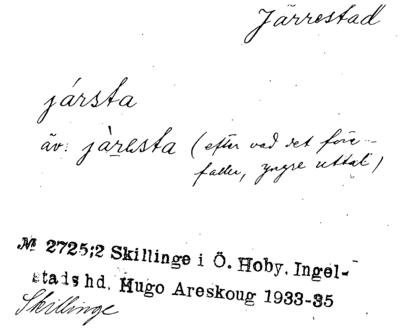 Järrestad
jársta
äv. jàresta (efter vad det före-
faller, yngre uttal)
№ 2725;2 Skillinge i Ö. Hoby. Ingel-
stads hd. Hugo Areskoug 1933-35
Skillinge